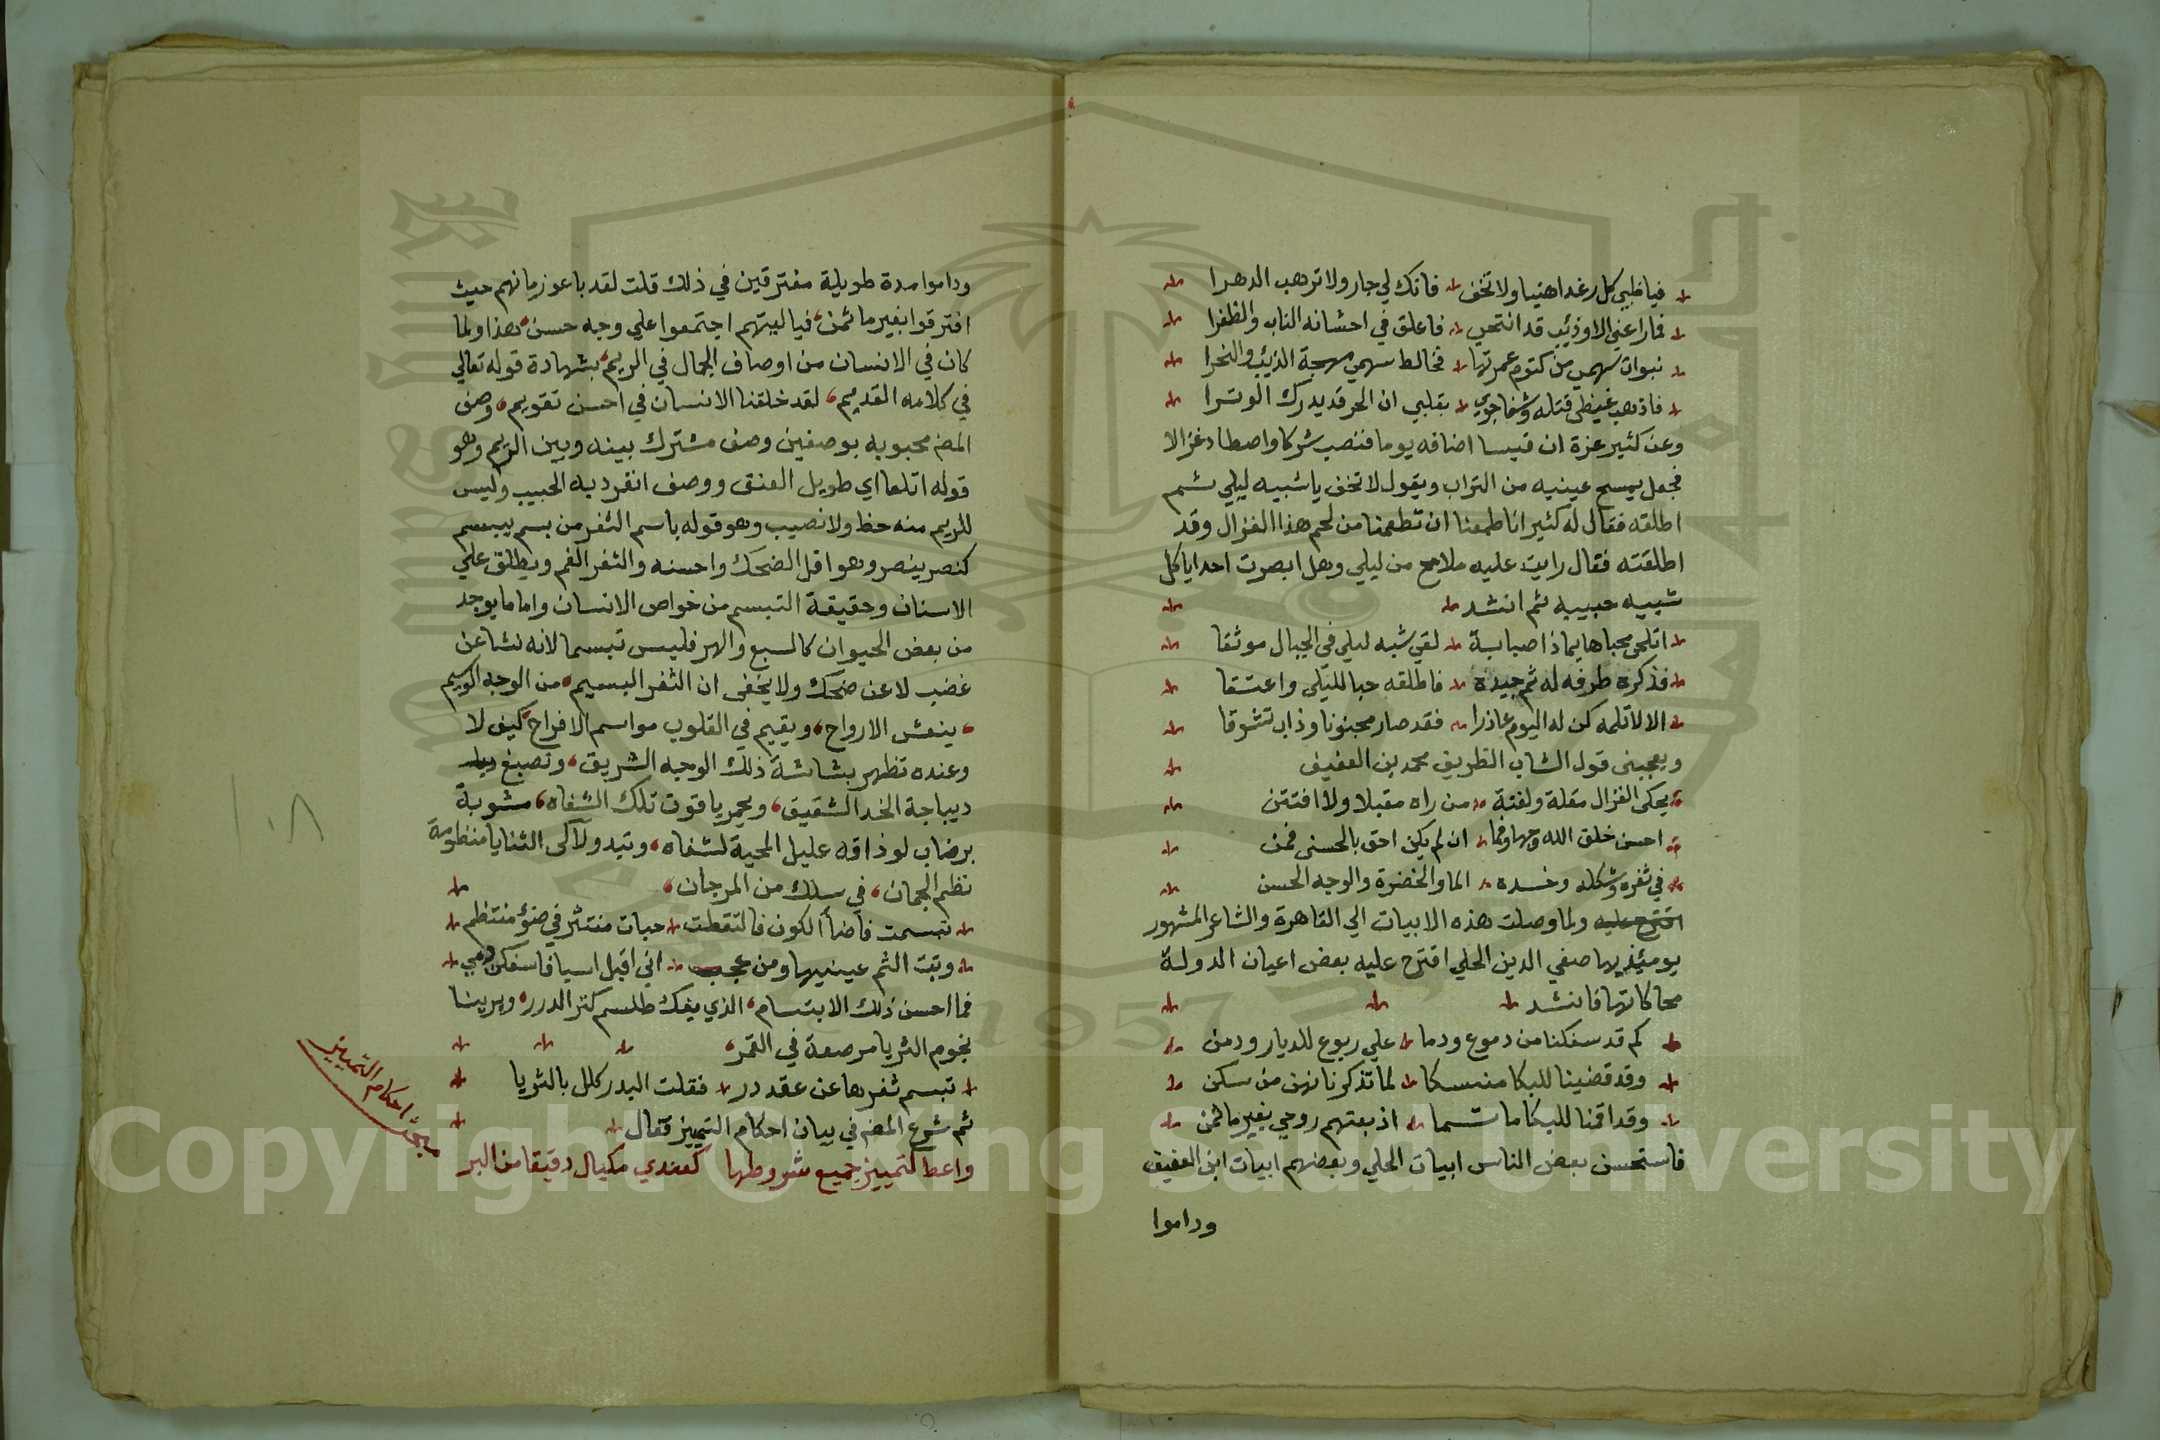 فياظبي كل رغدا هنيا ولا تخف فانك لي جار ولا ترهب الدهرا
فماراعني الا وذئب قد انتحي فاعلق في احشائه الناب والظفرا
نبوات سهمي من كتوم غمرتها فخالط سهمي مهجة الذيب والنحرا
فاذهب غيظي قتله وشفا جوي بقلبي ان الحر قد يدرك الوترا
وعن كثير عزة ان قيسا اضافه يوما فنصب شركا واصطاد غزالا
فجعل يمسح عينيه من التراب ويقول لا تخف يا شبيه ليلي ثم
اطلقه فقال له كثير انا طمعنا ان تطعمنا من لحم هذا الغزال وقد
اطلقته فقال رايت عليه ملامح من ليلي وهل ابصرت احدا ياكل
شبيه حبيبه ثم انشد
اتلحي محبا هايما ذا صبابة لقي شبه ليلي في الجبال موثقا
فذكره طرفه له ثم جيده فاطلقه حبا لليلي واعتقا
الا لا تلمه كن له اليوم عاذرا فقد صار مجنونا وذاب تشوقا
ويعجبني قول الشاب الظريف محمد بن العفيف
يحكي الغزال مقلة ولفتة من راه مقبلا ولا افتتن
احسن خلق الله وجها وفما ان لم يكن احق بالحسني فمن
في ثغره وشكله وخده الما والخضرة والوجه الحسن
اقترح عليه ولما وصلت هذه الابيات الي القاهرة والشاعر المشهور
يوميئذ بها صفي الدين الحلي اقترح عليه بعض اعيان الدولة
محاكاتها فانشد
كم قد سفكنا من دموع ودما علي ربوع للديار ودمن
وقد قضينا للبكا منسكا لما تذكرنا بهن من سكن
وقد اقمنا للبكا ماتما اذ بعتهم روحي بغير ما ثمن
فاستحسن بعض الناس ابيات الحلي وبعضهم ابيات ابن العفيف
وداموا
وداموا مدة طويلة مفترقين في ذلك قلت لقد باعوا زمانهم حيث
افترقوا بغير ما ثمن فيا ليتهم اجتمعوا علي وجه حسن هذا ولما
كان في الانسان من اوصاف الجمال في الريم بشهادة قوله تعالي
في كلامه القديم لقد خلقنا الانسان في احسن تقويم وصف
المصنف محبوبه بوصفين وصف مشترك بينه وبين الريم وهو
قوله اتلعا اي طويل العنق ووصف انفرد به الحبيب وليس
للريم منه حظ ولا نصيب وهو قوله باسم الثغر من بسم يبسم
كنصر ينصر وهو اقل الضحك واحسنه والثغر الفم ويطلق علي
الاسنان وحقيقة التبسم من خواص الانسان واما ما يوجد
من بعض الحيوان كالسبع والهر فليس تبسما لانه نشا عن
غضب لا عن ضحك ولا يخفي ان الثغر البسيم من الوجه الوسيم
ينعش الارواح ويقيم في القلوب مواسم الافراح كيف لا
وعنده تظهر بشاشة ذلك الوجه الشريق وتصبغ
ديباجة الخد الشقيق ويحمر ياقوت تلك الشفاه مشوبة
برضاب لو ذاقه عليل المحبة لشفاه وتبدو لآلي الثنايا منظومة
نظم الجمان في سلك من المرجان
تبسمت فاضأ الكون فالتقطت حبات منتثر في ضؤ منتظم
وبت الثم عينيها ومن عجب اني اقبل اسيافا سفكن دمي
فما احسن ذلك الابتسام الذي يفك طلسم كنز الدرر ويرينا
نجوم الثريا مرصعة في القمر
تبسم ثغرها عن عقد در فقلت البدر كلل بالثريا
ثم شرع المصنف في بيان احكام التمييز فقال
واعط لتمييز جميع شروطها كعندي مكيال دقيقا من البر
مبحث احكام التمييز
١٠٨
Copyright © King Saud University
1957